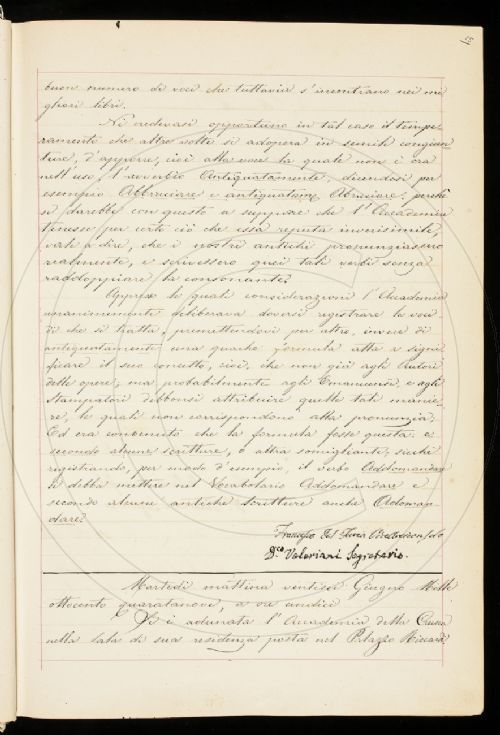 15
buon numero di voci che tuttavia s'incontrano nei mi
gliori libri.
Nè credevasi opportuno in tal caso il tempe-
ramento che altre volte si adopera in simili congiun
ture, d'apporre, cioè alla voce la quale non è ora
nell'uso, l'avverbio Antiquatamente, dicendosi per
esempio Abbruciare e antiquatam. Abruciare: perchè
si darebbe con questo a supporre che l'Accademia
tenesse per certo ciò che essa reputa inverisimile,
vale a dire, che i nostri antichi pronunziassero
realmente, e scrivessero quei tali verbi senza
raddoppiare la consonante.
Appresso le quali considerazioni l'Accademia
unanimemente deliberava doversi registrare le voci
di che si tratta, premettendovi per altro, invece di
antiquatamente una qualche formula atta a signi
ficare il suo concetto, cioè, che non già agli Autori
delle opere, ma probabilmente agli Emanuensi e agli
stampatori debbonsi attribuire quelle tali manie-
re, le quali non corrispondono alla pronunzia.
Ed era convenuto che la formula fosse questa: e
secondo alcune scritture, o altra somigliante; sicchè
registrando, per modo d'esempio, il verbo Addomandare
si debba mettere nel Vocabolario Addomandare e
secondo alcune antiche scritture anche Adoman-
dare.
Francesco Del Furia
D.co Valeriani Segretario.
Martedì mattina ventisei Giugno Mille
ottocento quarantanove, a ore undici
Si è adunata l'Accademia della Crusca
nella sala di sua residenza posta nel Palazzo Riccardi